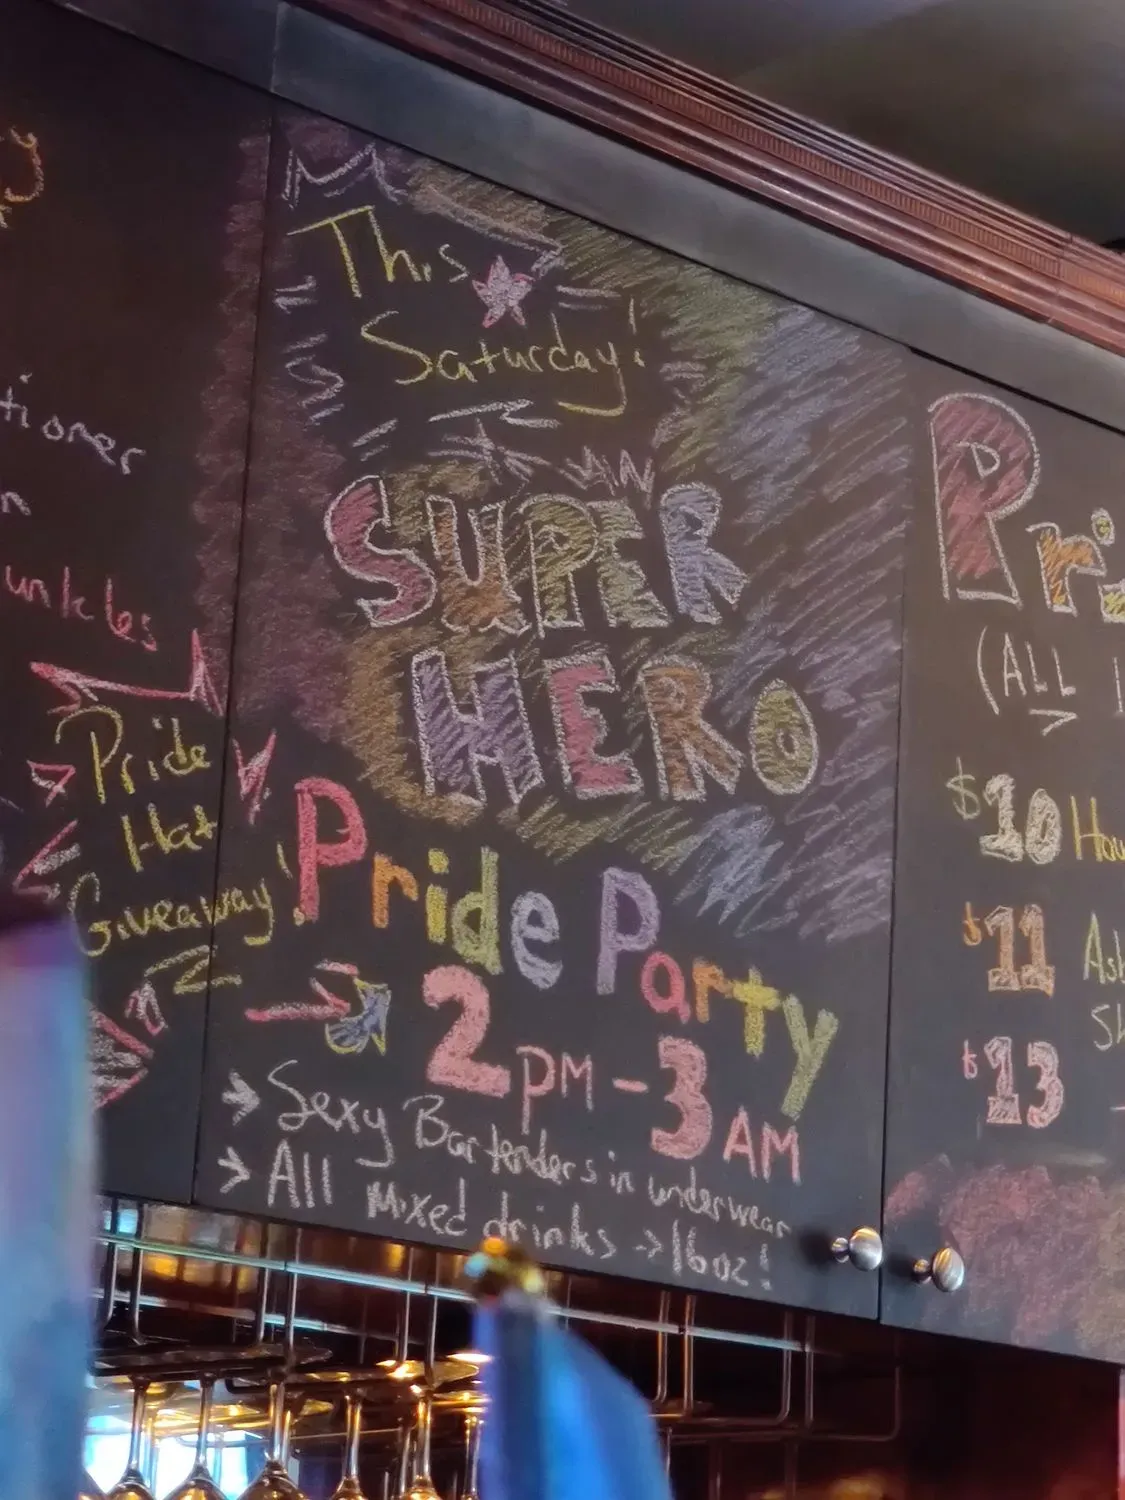 unkles
Pride
Hat
Giveaway!
This
Saturday!
SUPER
HERO
Pride Party
2PM-3AM
→ Sexy Bartenders in underwear
→ All Mixed drinks → 16oz!
(ALL
$10
$11
$13